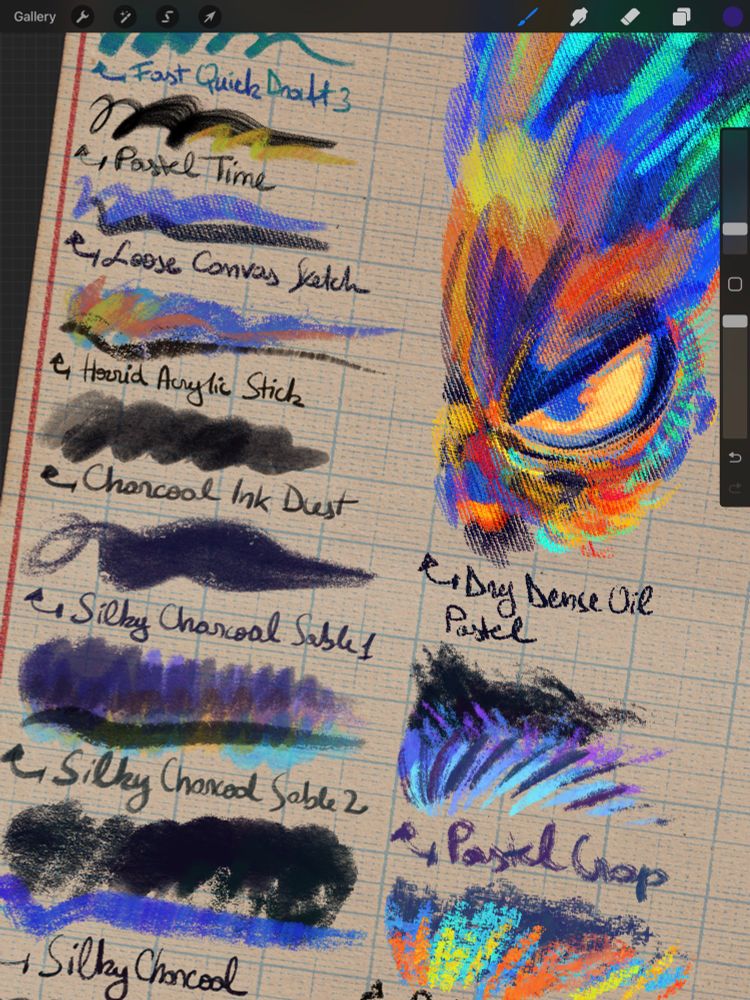 Gallery
Fast Quick Draft 3
Pastel Time
Loose Canvas Sketch
Horrid Acrylic Stick
Charcoal Ink Dust
Silky Charcoal Sable 1
Silky Charcoal Sable 2
Silky Charcoal
Dry Dense Oil
Pastel
Pastel Crop